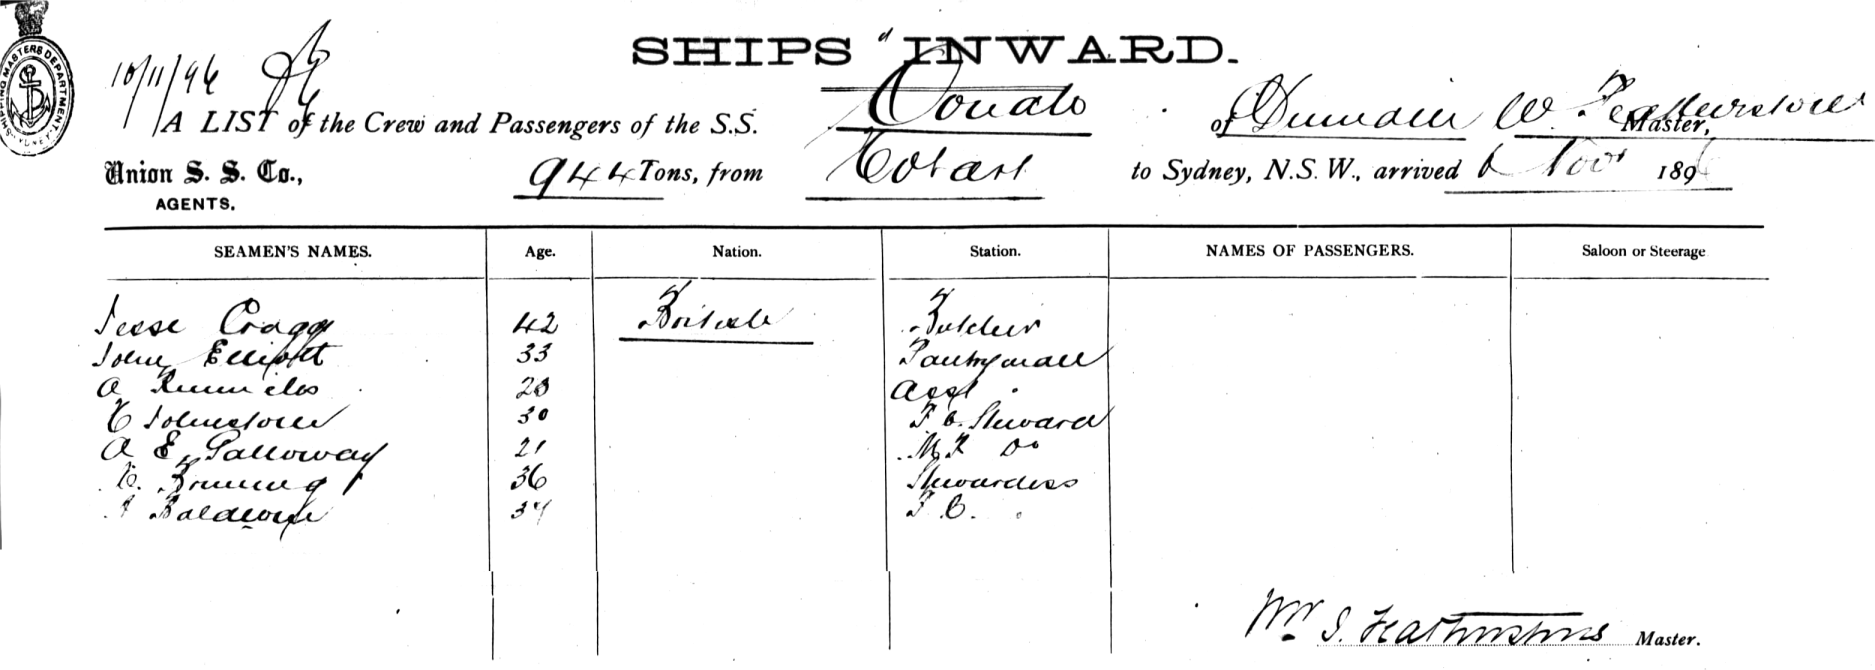 SHIPS INWARD.
SHIPPING MASTERS DEPARTMENT
10/11/96
A LIST of the Crew and Passengers of the S.S. of Dunedin W. Featherstone Master,
Union S. S. Co., 944 Tons, from Hobart to Sydney, N.S.W., arrived 6 Nov 1896
AGENTS.
SEAMEN'S NAMES. Age. Nation. Station. NAMES OF PASSENGERS. Saloon or Steerage
Jesse Cragg 42 British Butcher
John Elliott 33 Pantryman
A 20 Asst
C Johnstone 30 F. C. Steward
A E Galloway 21 Do
36 Stewardess
Baldwin 34 F. C.
Wm J. Featherstone Master.